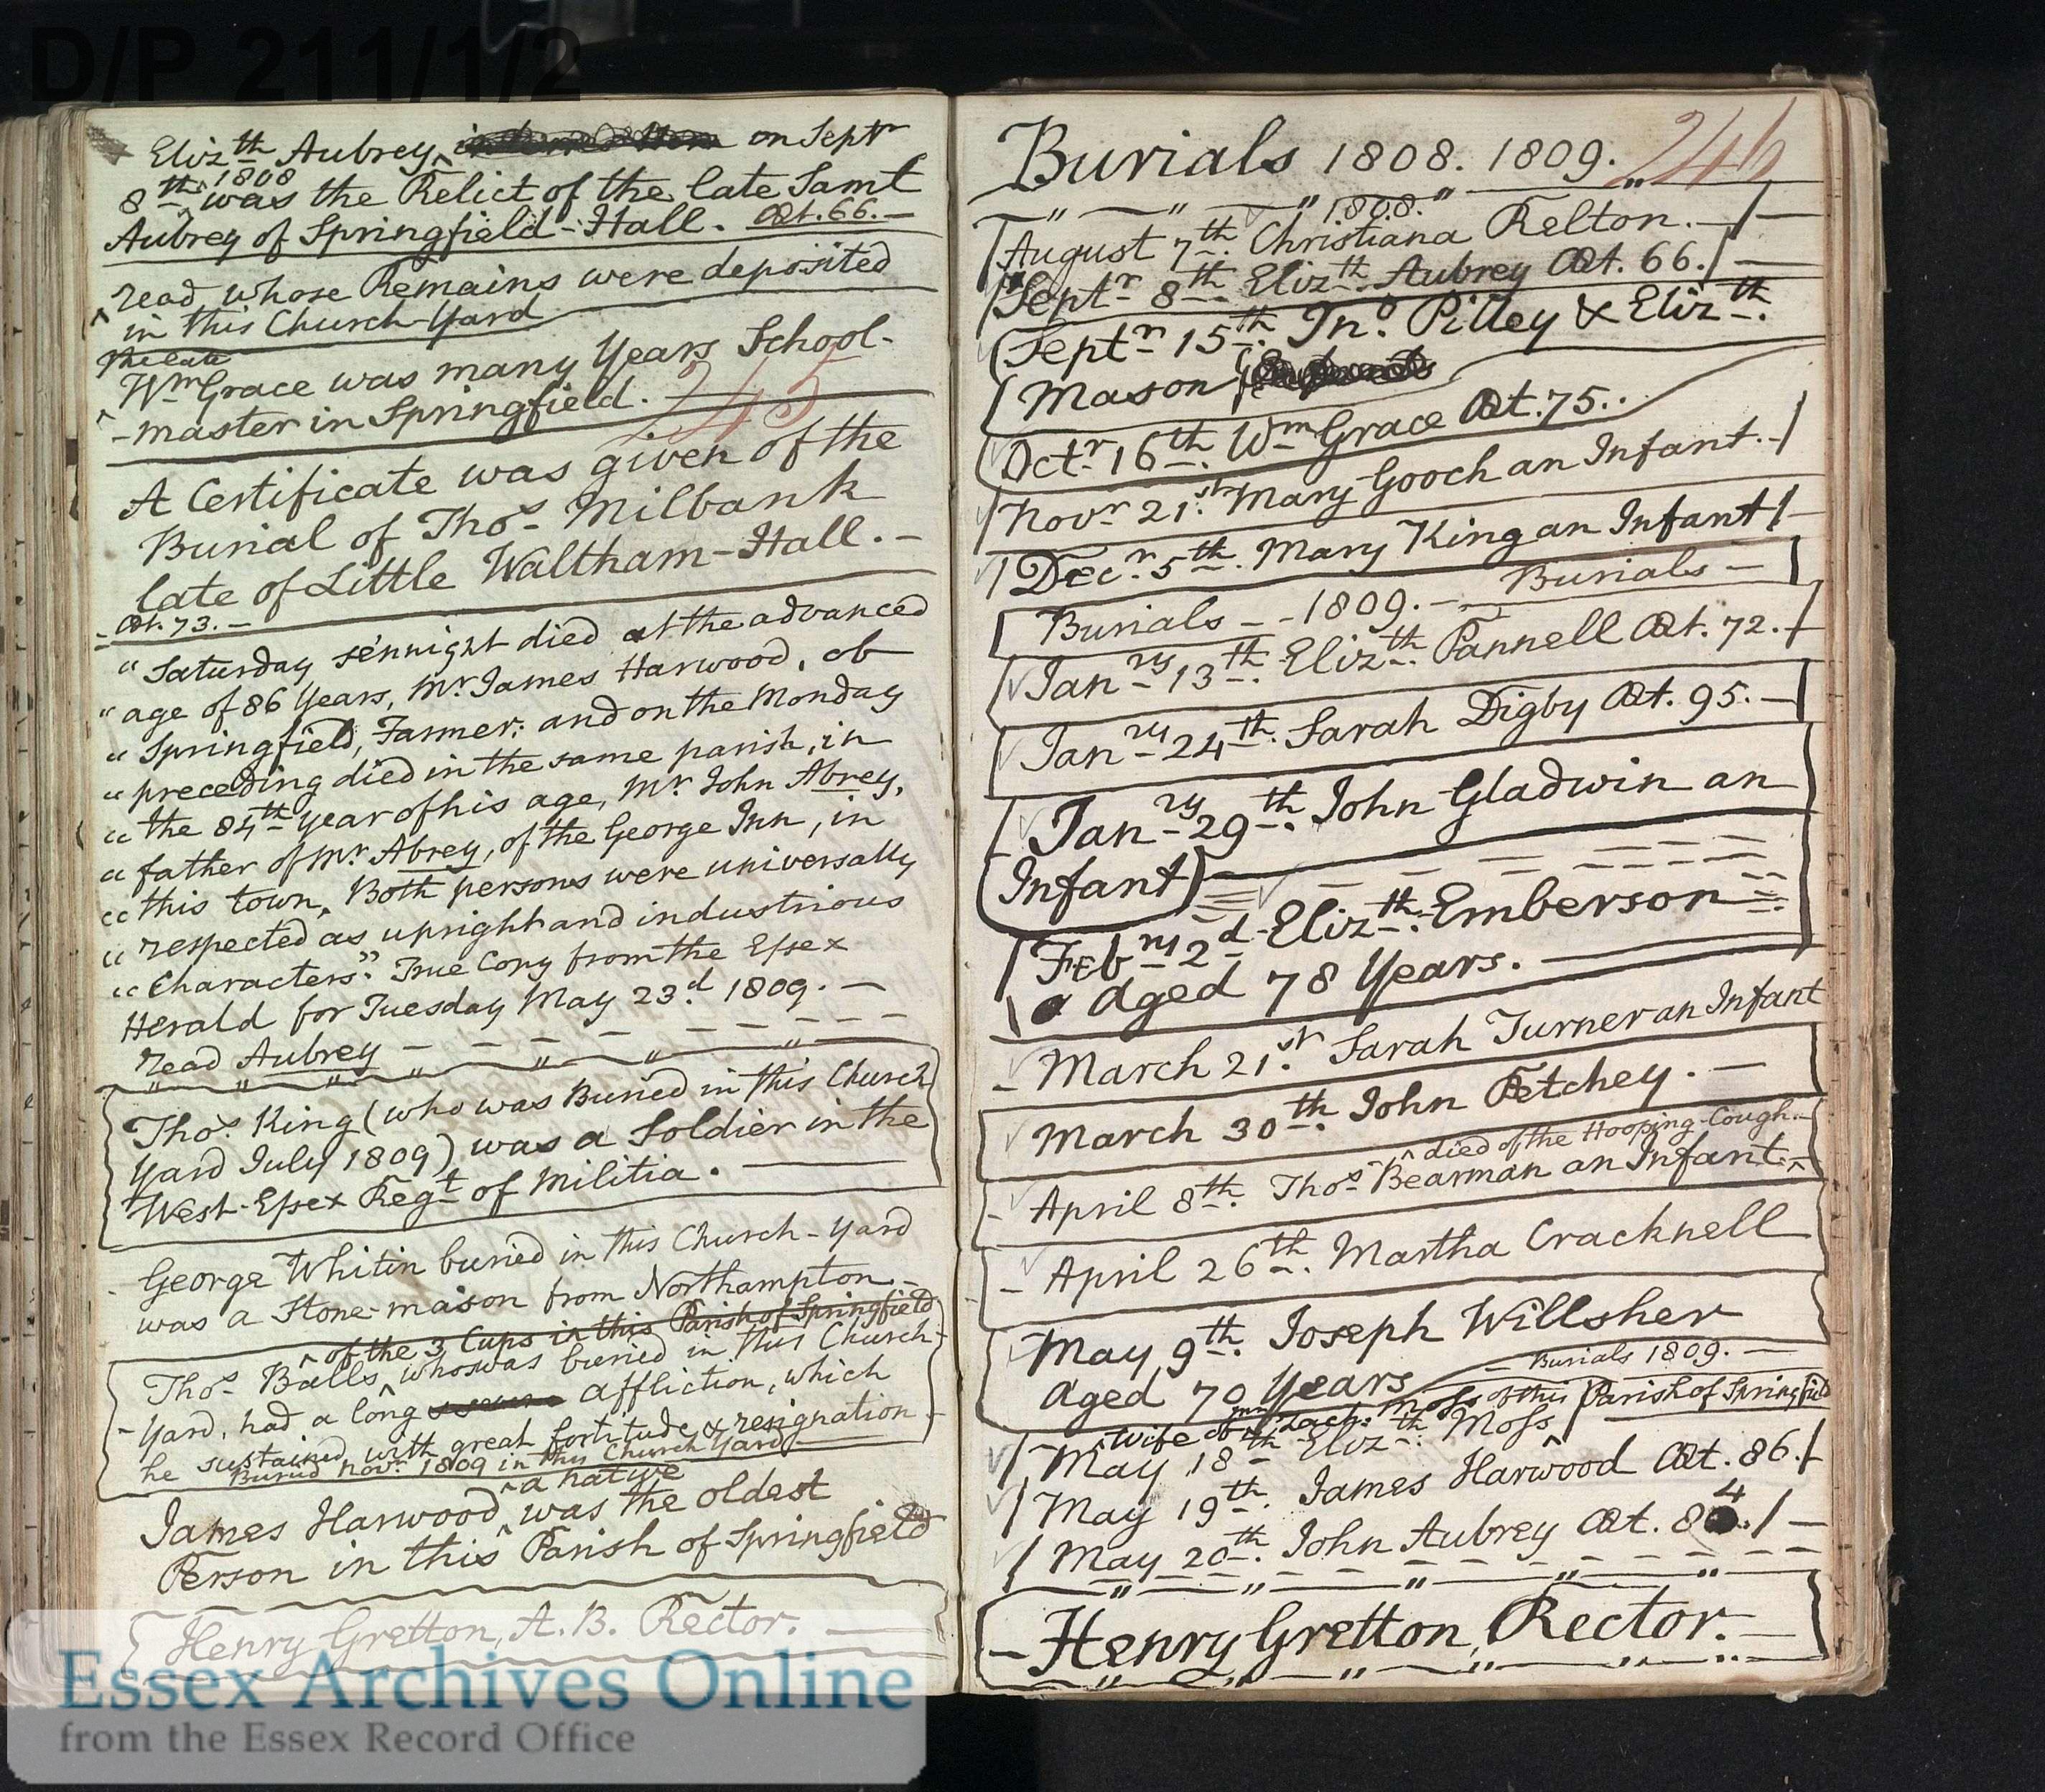 D/P 211/1/2
Elizth Aubrey, on Septr
8th 1808 was the Relict of the late Saml
Aubrey of Springfield-Hall. Æt. 66.-
read, whose Remains were deposited
in this Church-Yard
The late
Wm Grace was many Years School-
-master in Springfield.
245
A Certificate was given of the
Burial of Thos Milbank
late of Little Waltham-Hall.-
Æt. 73.-
"Saturday se'nnight died at the advanced
"age of 86 Years, Mr James Harwood, of
"Springfield, Farmer: and on the Monday
"preceding died in the same parish, in
"the 84th year of his age, Mr John Abrey,
"father of Mr Abrey, of the George Inn, in
"this town, Both persons were universally
"respected as upright and industrious
"Characters". True Copy from the Essex
Herald for Tuesday May 23d 1809.-
read Aubrey
Thos King (who was Buried in this Church
Yard July 1809) was a Soldier in the
West-Essex Regt of Militia.
George Whitin buried in this Church-Yard
was a Stone-mason from Northampton-
of the 3 Cups in this Parish of Springfield
Thos Balls, who was buried in this Church-
-Yard, had a long affliction, which
he sustained with great fortitude & resignation
Buried Novr 1809 in this Church Yard
a native
James Harwood, was the oldest
Person in this Parish of Springfield
Henry Gretton, A.B. Rector.
Burials 1808. 1809. 246
1808.
August 7th. Christiana Relton.-
Septr 8th. Elizth. Aubrey Æt. 66.
Septr 15th. Jno. Pilley & Elizth.
Mason
Octr 16th. Wm Grace Æt. 75..
Novr 21st Mary Gooch an Infant.-
Decr 5th. Mary King an Infant
Burials - 1809.- Burials-
Janry 13th. Elizth. Pannell Æt. 72.-
Janry 24th. Sarah Digby Æt. 95.-
Janry 29th. John Gladwin an
Infant
Febry 2d. Elizth. Emberson
Aged 78 Years.
March 21st. Sarah Turner an Infant
March 30th. John Fetchey.-
died of the Hooping-Cough.-
April 8th. Thos Bearman an Infant.-
April 26th. Martha Cracknell
May 9th. Joseph Willsher
Aged 70 Years
- Burials 1809.-
Wife of Zach: Moss of this Parish of Springfield
May 18th Elizth. Moss
May 19th. James Harwood Æt. 86.
May 20th. John Aubrey Æt. 84.
-Henry Gretton, Rector.-
Essex Archives Online
from the Essex Record Office